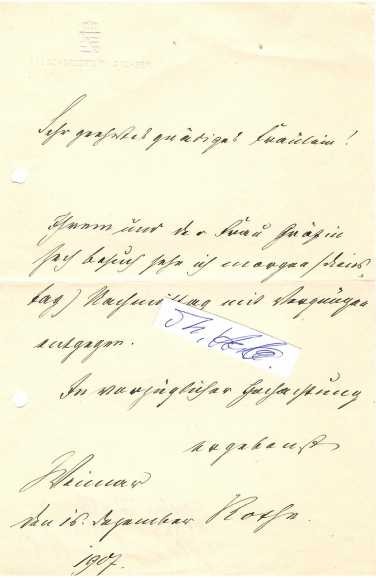 Sehr geehrtes gnädiges Fräulein!
Ihrem und der Frau Gräfin
Besuch sehe ich morgen (Diens-
tag) Nachmittag mit Vergnügen
entgegen.
In vorzüglicher Hochachtung
ergebenst
Weimar
den 16. Dezember Rothe.
1907.